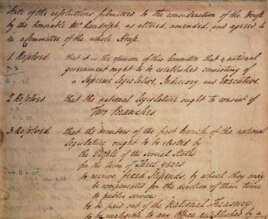 State of the resolutions submitted to the consideration of the House
by the honorable Mr. Randolph, as altered, amended, and agreed to
in a Committee of the whole House.
1. Resolved that it is the opinion of this Committee that a national
government ought to be established consisting of
a Supreme Legislative, Judiciary, and Executive.
2. Resolved that the national Legislature ought to consist of
Two Branches
3. Resolved that the Members of the first branch of the national
Legislature ought to be elected by
the People of the several States
for the term of Three years
to receive fixed stipends, by which they may
be compensated for the devotion of their time
to public service
to be paid out of the National Treasury
to be ineligible to any Office established by a